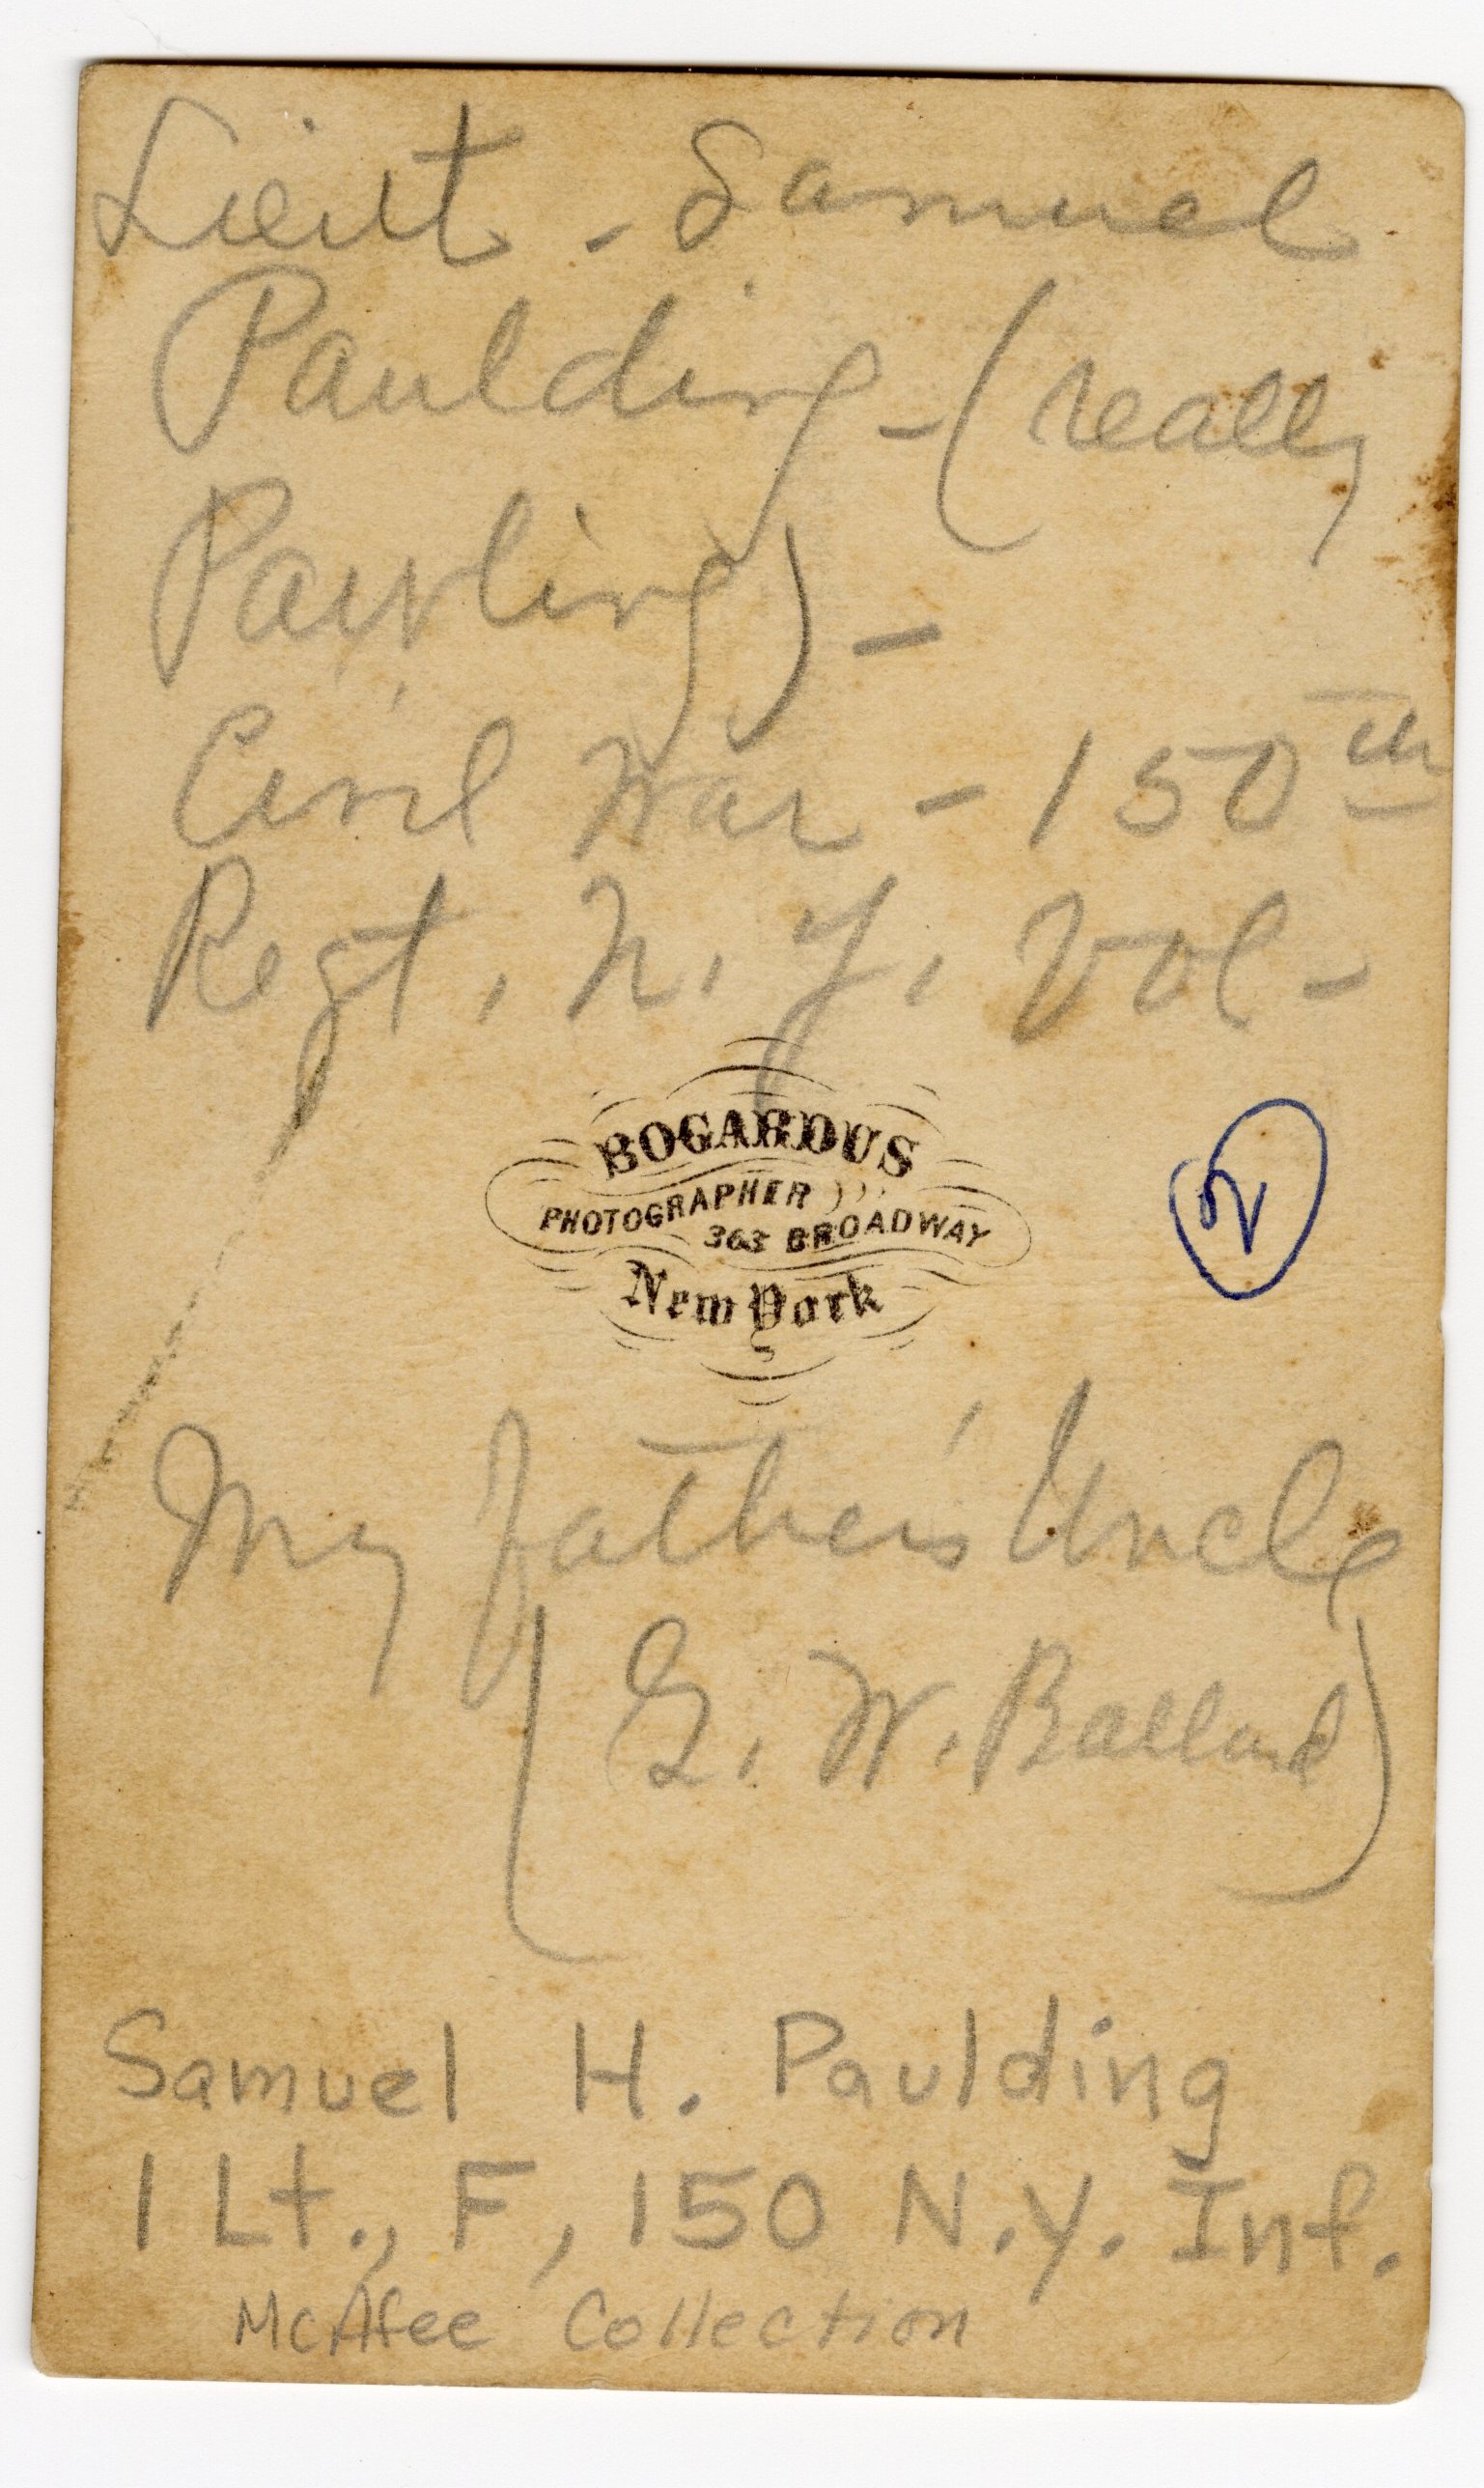 Lieut - Samuel
Paulding - (really
Pawling) -
Civil War - 150th
Regt, N. Y, Vol -
BOGARDUS
PHOTOGRAPHER
363 BROADWAY
New York
2
My father's Uncle
(G. W. Ballard)
Samuel H. Paulding
1 Lt., F, 150 N.Y. Inf.
McAfee Collection